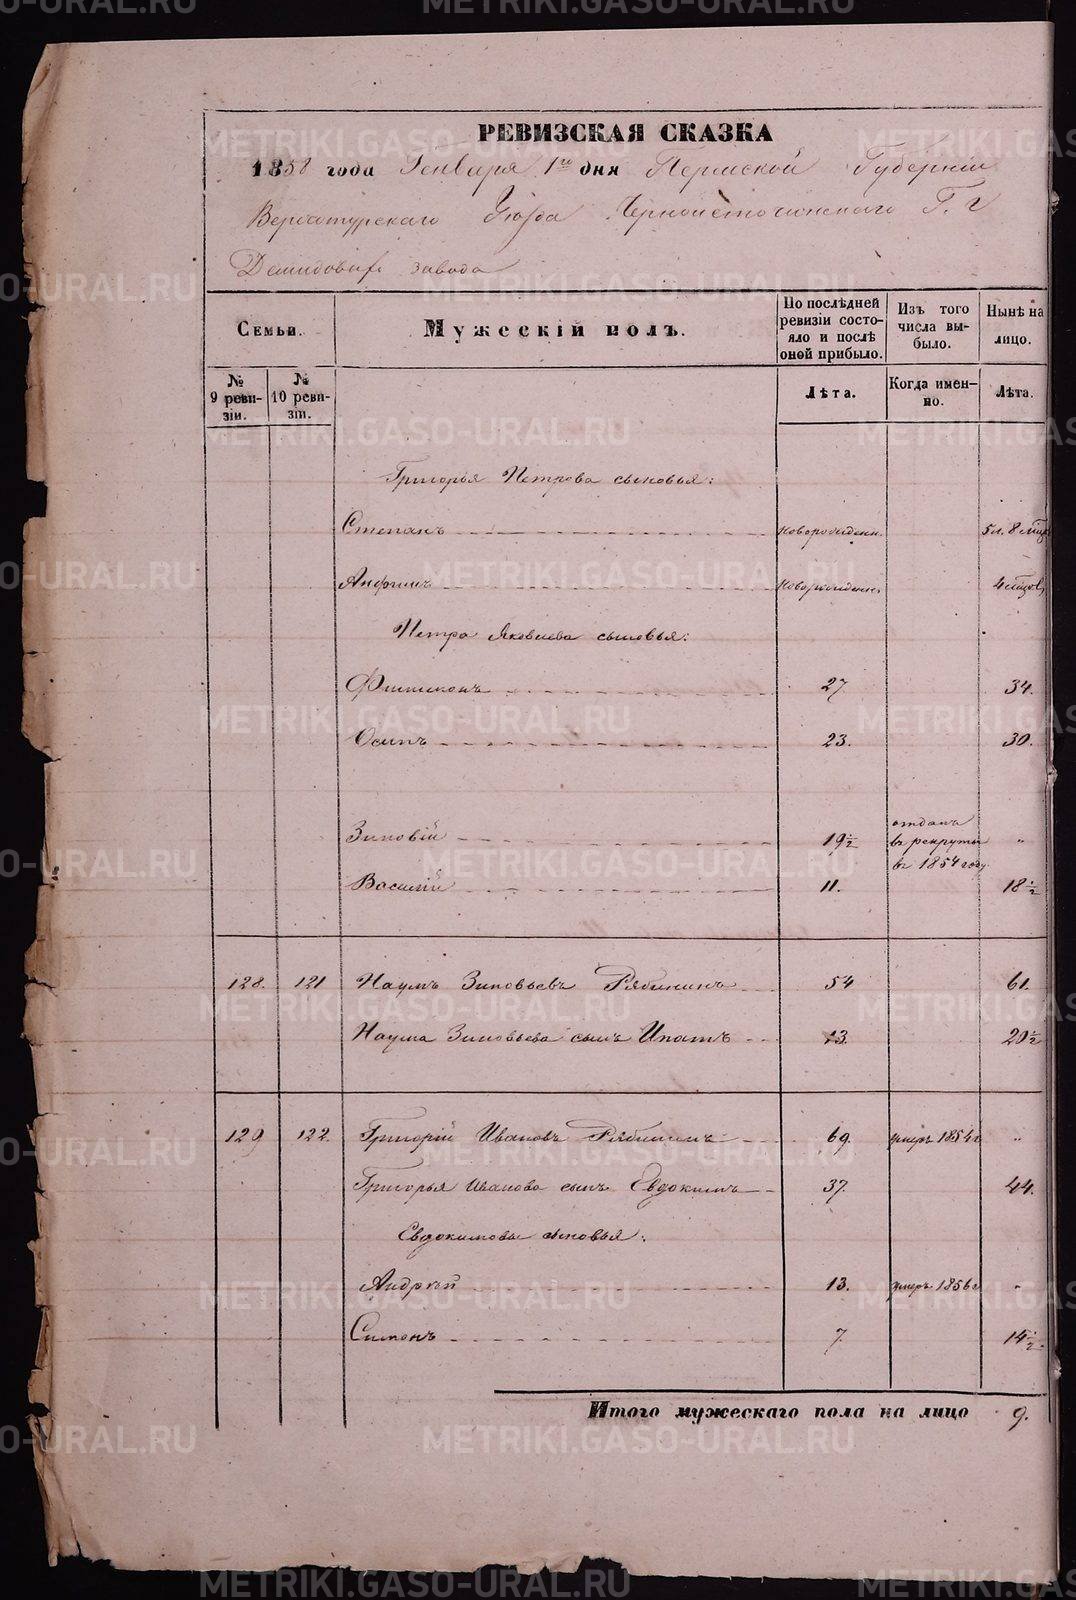 METRIKI.GASO-URAL.RU
РЕВИЗСКАЯ СКАЗКА
1858 года Генваря 1го дня Пермской Губернiи
Верхотурскаго Уѣзда Черноисточинскаго Г. г
Демидовыхъ завода
Семьи.
Мужескiй полъ.
По послѣдней ревизiи состояло и послѣ оной прибыло.
Изъ того числа выбыло.
Нынѣ на лицо.
№ 9 ревизiи.
№ 10 ревизiи.
Лѣта.
Когда именно.
Лѣта.
Григорья Петрова сыновья:
Степанъ новорожденн. 5 л. 8 мѣс
Анфимъ новорожденнъ 4 мѣсов
Петра Яковлева сыновья:
Филимонъ 27 34.
Осипъ 23. 30.
Зиновiй 19½ отданъ въ рекруты въ 1854 году. "
Василiй 11. 18½
128. 121 Наумъ Зиновьевъ Рябининъ 54 61.
Наума Зиновьева сынъ Ипатъ 13. 20½
129 122. Григорiй Ивановъ Рябининъ 69. умеръ 1854 г "
Григорья Иванова сынъ Евдокимъ 37. 44.
Евдокимовы сыновья:
Андрей 13. умеръ 1856 г "
Симонъ 7. 14½
Итого мужескаго пола на лицо 9.